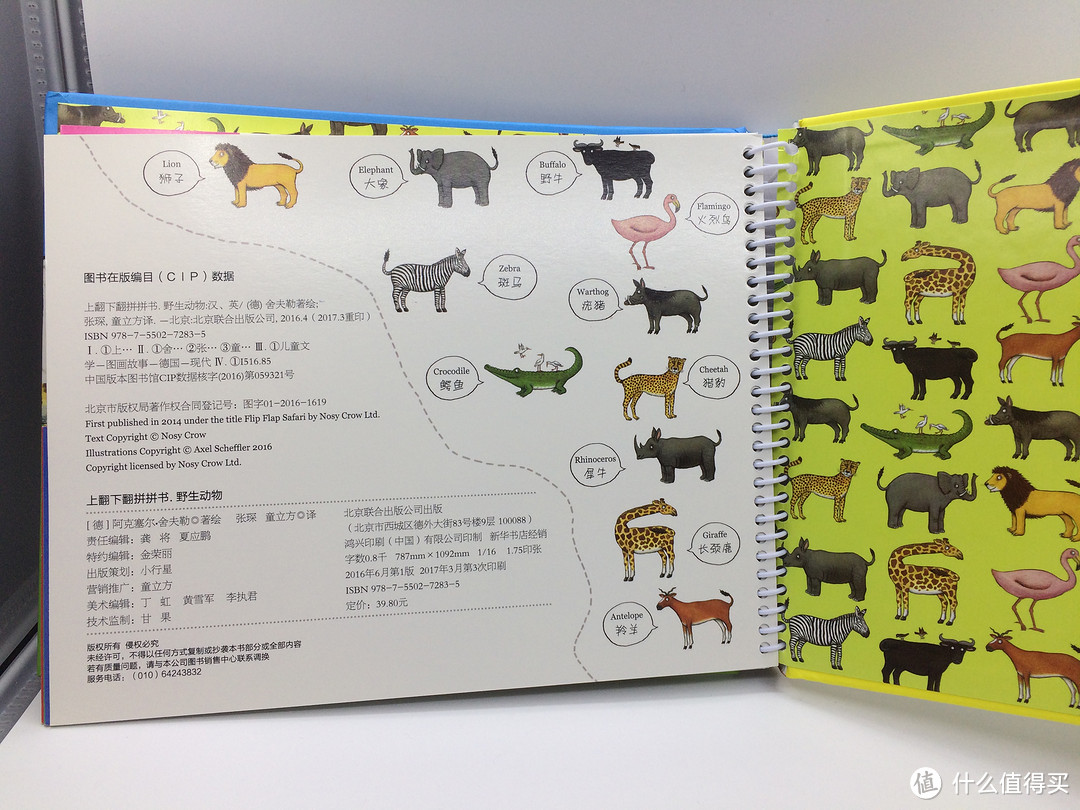 Lion
狮子
Elephant
大象
Buffalo
野牛
Flamingo
火烈鸟
Zebra
斑马
Warthog
疣猪
Crocodile
鳄鱼
Cheetah
猎豹
Rhinoceros
犀牛
Giraffe
长颈鹿
Antelope
羚羊
图书在版编目(CIP)数据
上翻下翻拼拼书.野生动物:汉、英/(德)舍夫勒著绘;
张琛,童立方译.—北京:北京联合出版公司,2016.4(2017.3重印)
ISBN 978-7-5502-7283-5
Ⅰ.①上… Ⅱ.①舍… ②张… ③童… Ⅲ.①儿童文
学—图画故事—德国—现代 Ⅳ.①I516.85
中国版本图书馆CIP数据核字(2016)第059321号
北京市版权局著作权合同登记号:图字01-2016-1619
First published in 2014 under the title Flip Flap Safari by Nosy Crow Ltd.
Text Copyright © Nosy Crow
Illustrations Copyright © Axel Scheffler 2016
Copyright licensed by Nosy Crow Ltd.
上翻下翻拼拼书.野生动物
[德]阿克塞尔·舍夫勒◎著绘 张琛 童立方◎译
责任编辑:龚 将 夏应鹏
特约编辑:金荣丽
出版策划:小行星
营销推广:童立方
美术编辑:丁 虹 黄雪军 李执君
技术监制:甘 果
北京联合出版公司出版
(北京市西城区德外大街83号楼9层 100088)
鸿兴印刷(中国)有限公司印制 新华书店经销
字数0.8千 787mm×1092mm 1/16 1.75印张
2016年6月第1版 2017年3月第3次印刷
ISBN 978-7-5502-7283-5
定价:39.80元
版权所有 侵权必究
未经许可,不得以任何方式复制或抄袭本书部分或全部内容
若有质量问题,请与本公司图书销售中心联系调换
服务电话:(010)64243832
值 什么值得买